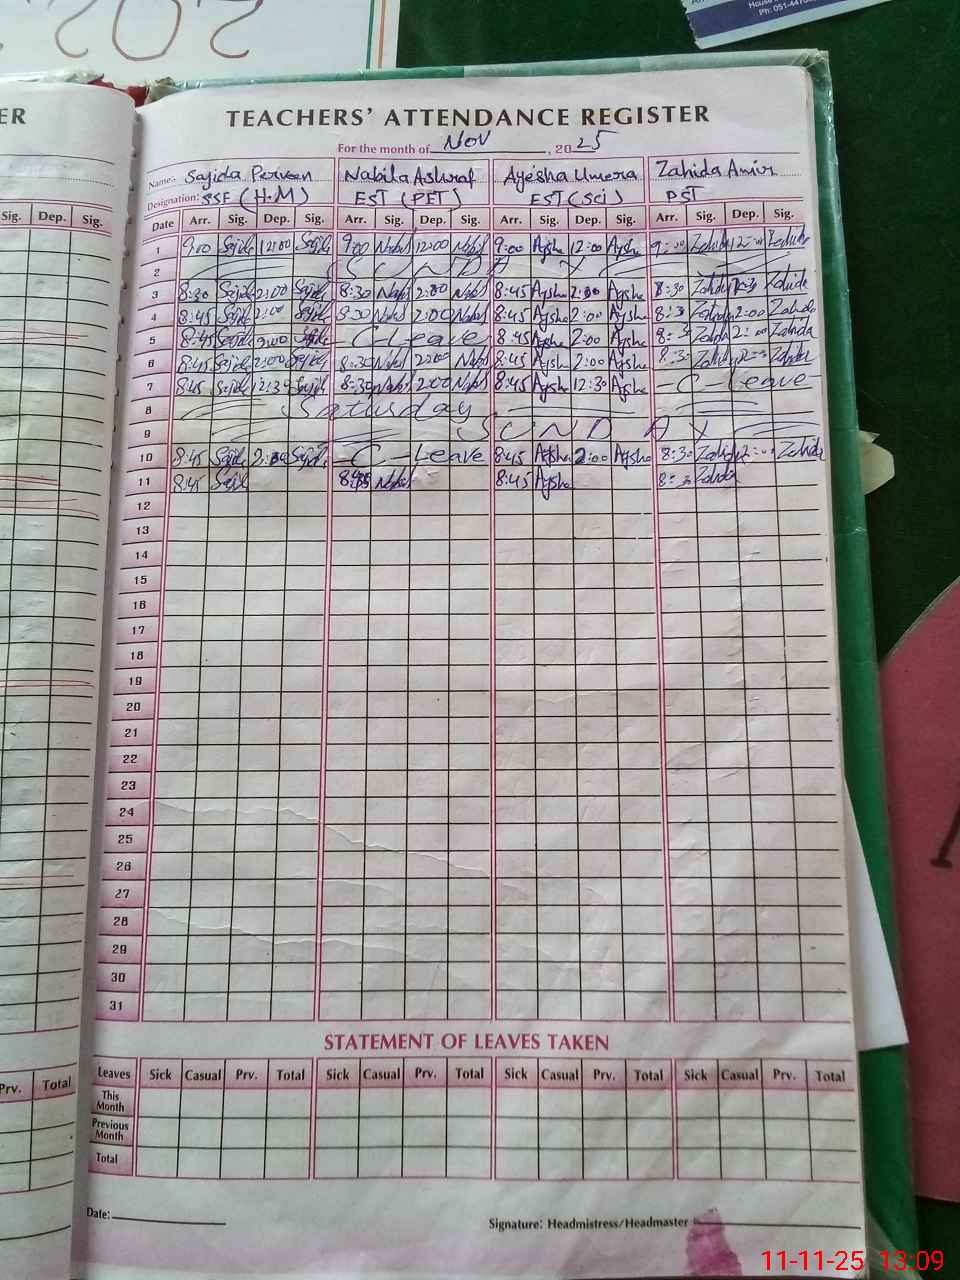 202
House
Ph: 051-4470
ER
TEACHERS' ATTENDANCE REGISTER
For the month of Nov, 2025
Name:- Sajida Perveen Nabila Ashraf Ayesha Umera Zahida Amir
Designation: SSE (H.M) EST (PET) EST (Sci) PST
Sig. Dep. Sig. Date Arr. Sig. Dep. Sig. Arr. Sig. Dep. Sig. Arr. Sig. Dep. Sig. Arr. Sig. Dep. Sig.
1 9:00 Sajida 12:00 Sajida 9:00 Nabil 12:00 Nabil 9:00 Aysha 12:00 Aysha 9:00 Zahida 12:00 Zahida
2 SUNDAY
3 8:30 Sajida 2:00 Sajida 8:30 Nabil 2:00 Nabil 8:45 Aysha 2:00 Aysha 8:30 Zahida Zahida
4 8:45 Sajida 2:00 Sajida 8:30 Nabil 2:00 Nabil 8:45 Aysha 2:00 Aysha 8:30 Zahida 2:00 Zahida
5 8:45 Sajida 2:00 Sajida C-Leave 8:45 Aysha 2:00 Aysha 8:30 Zahida 2:00 Zahida
6 8:45 Sajida 2:00 Sajida 8:30 Nabil 2:00 Nabil 8:45 Aysha 2:00 Aysha 8:30 Zahida 2:00 Zahida
7 8:45 Sajida 12:30 Sajida 8:30 Nabil 2:00 Nabil 8:45 Aysha 12:30 Aysha -C-leave-
8 Saturday
9 SUNDAY
10 8:45 Sajida 2:00 Sajida -C-Leave 8:45 Aysha 2:00 Aysha 8:30 Zahida 2:00 Zahida
11 8:45 Sajida Nabil 8:45 Aysha 8:30 Zahida
12
13
14
15
16
17
18
19
20
21
22
23
24
25
26
27
28
29
30
31
STATEMENT OF LEAVES TAKEN
Prv. Total Leaves Sick Casual Prv. Total Sick Casual Prv. Total Sick Casual Prv. Total Sick Casual Prv. Total
This Month
Previous Month
Total
Date:
Signature: Headmistress/Headmaster
11-11-25 13:09